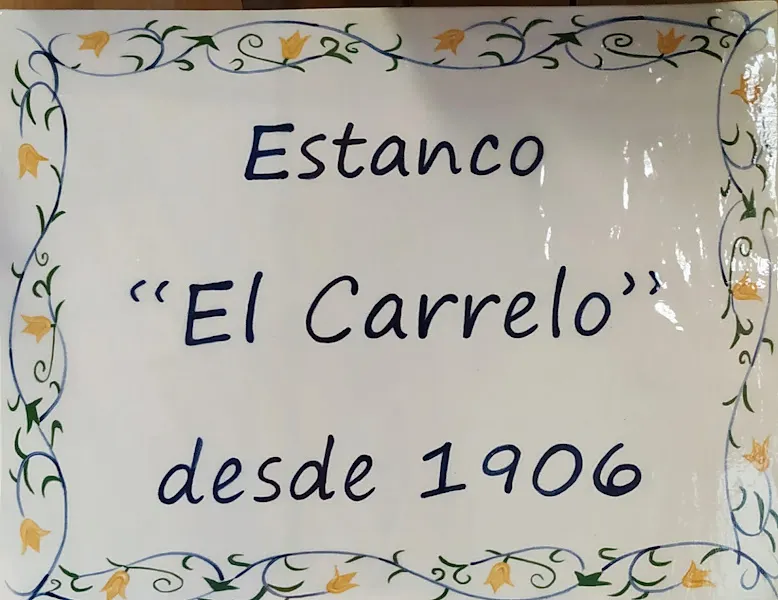 Estanco
“El Carrelo”
desde 1906